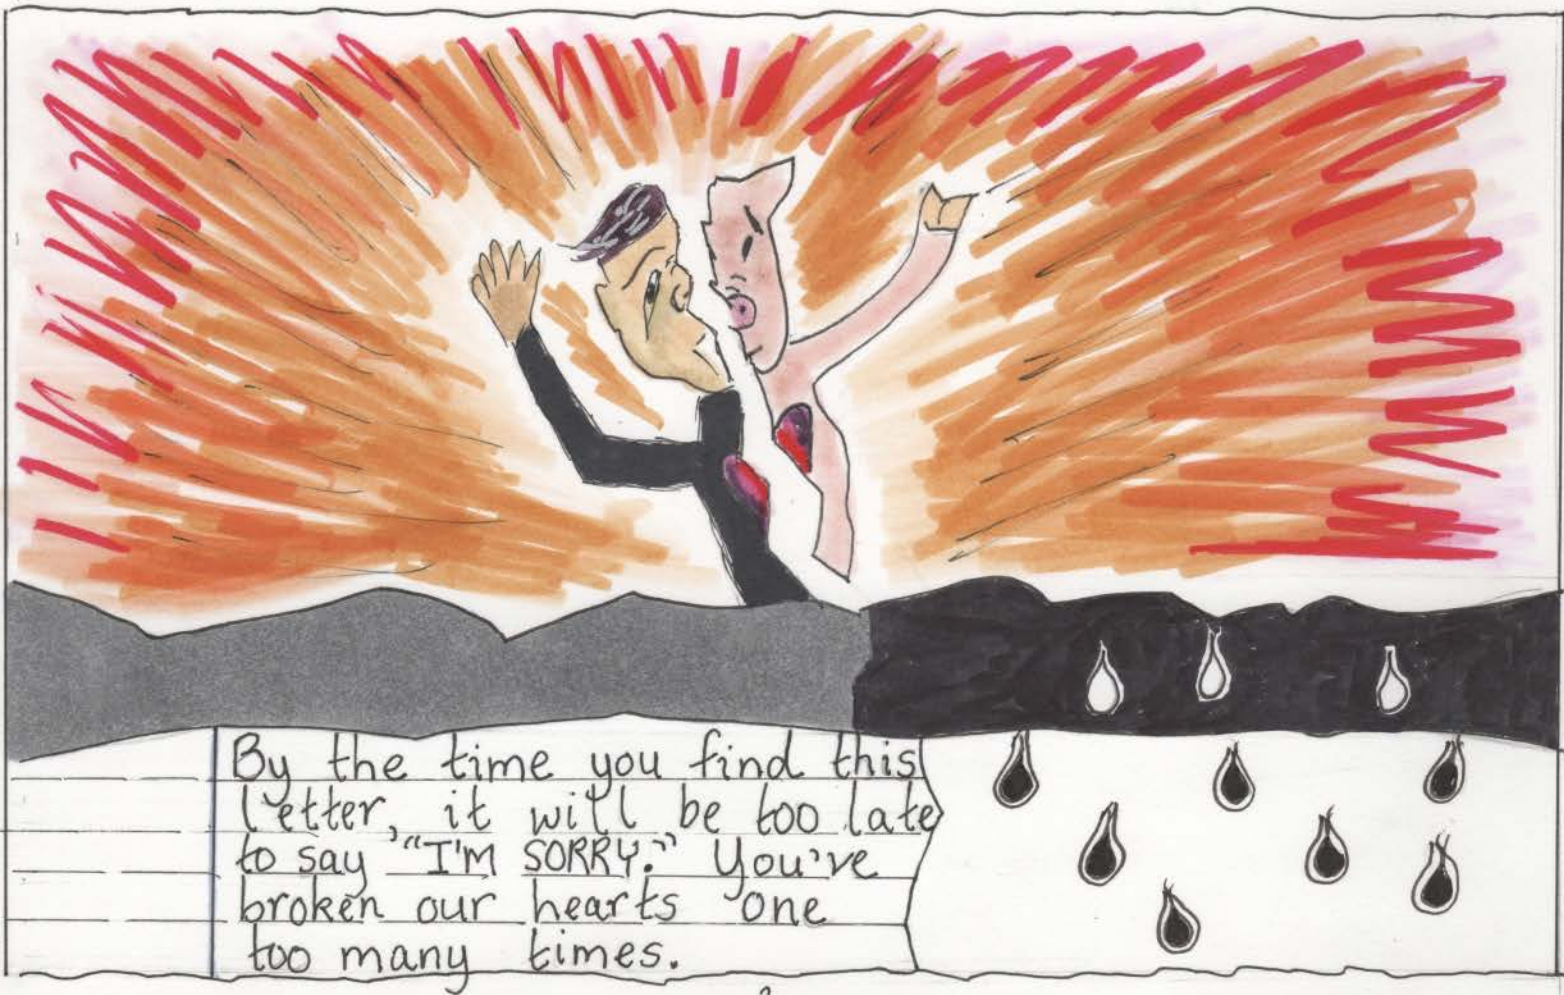 By the time you find this
letter, it will be too late
to say "I'M SORRY." You've
broken our hearts one
too many times.